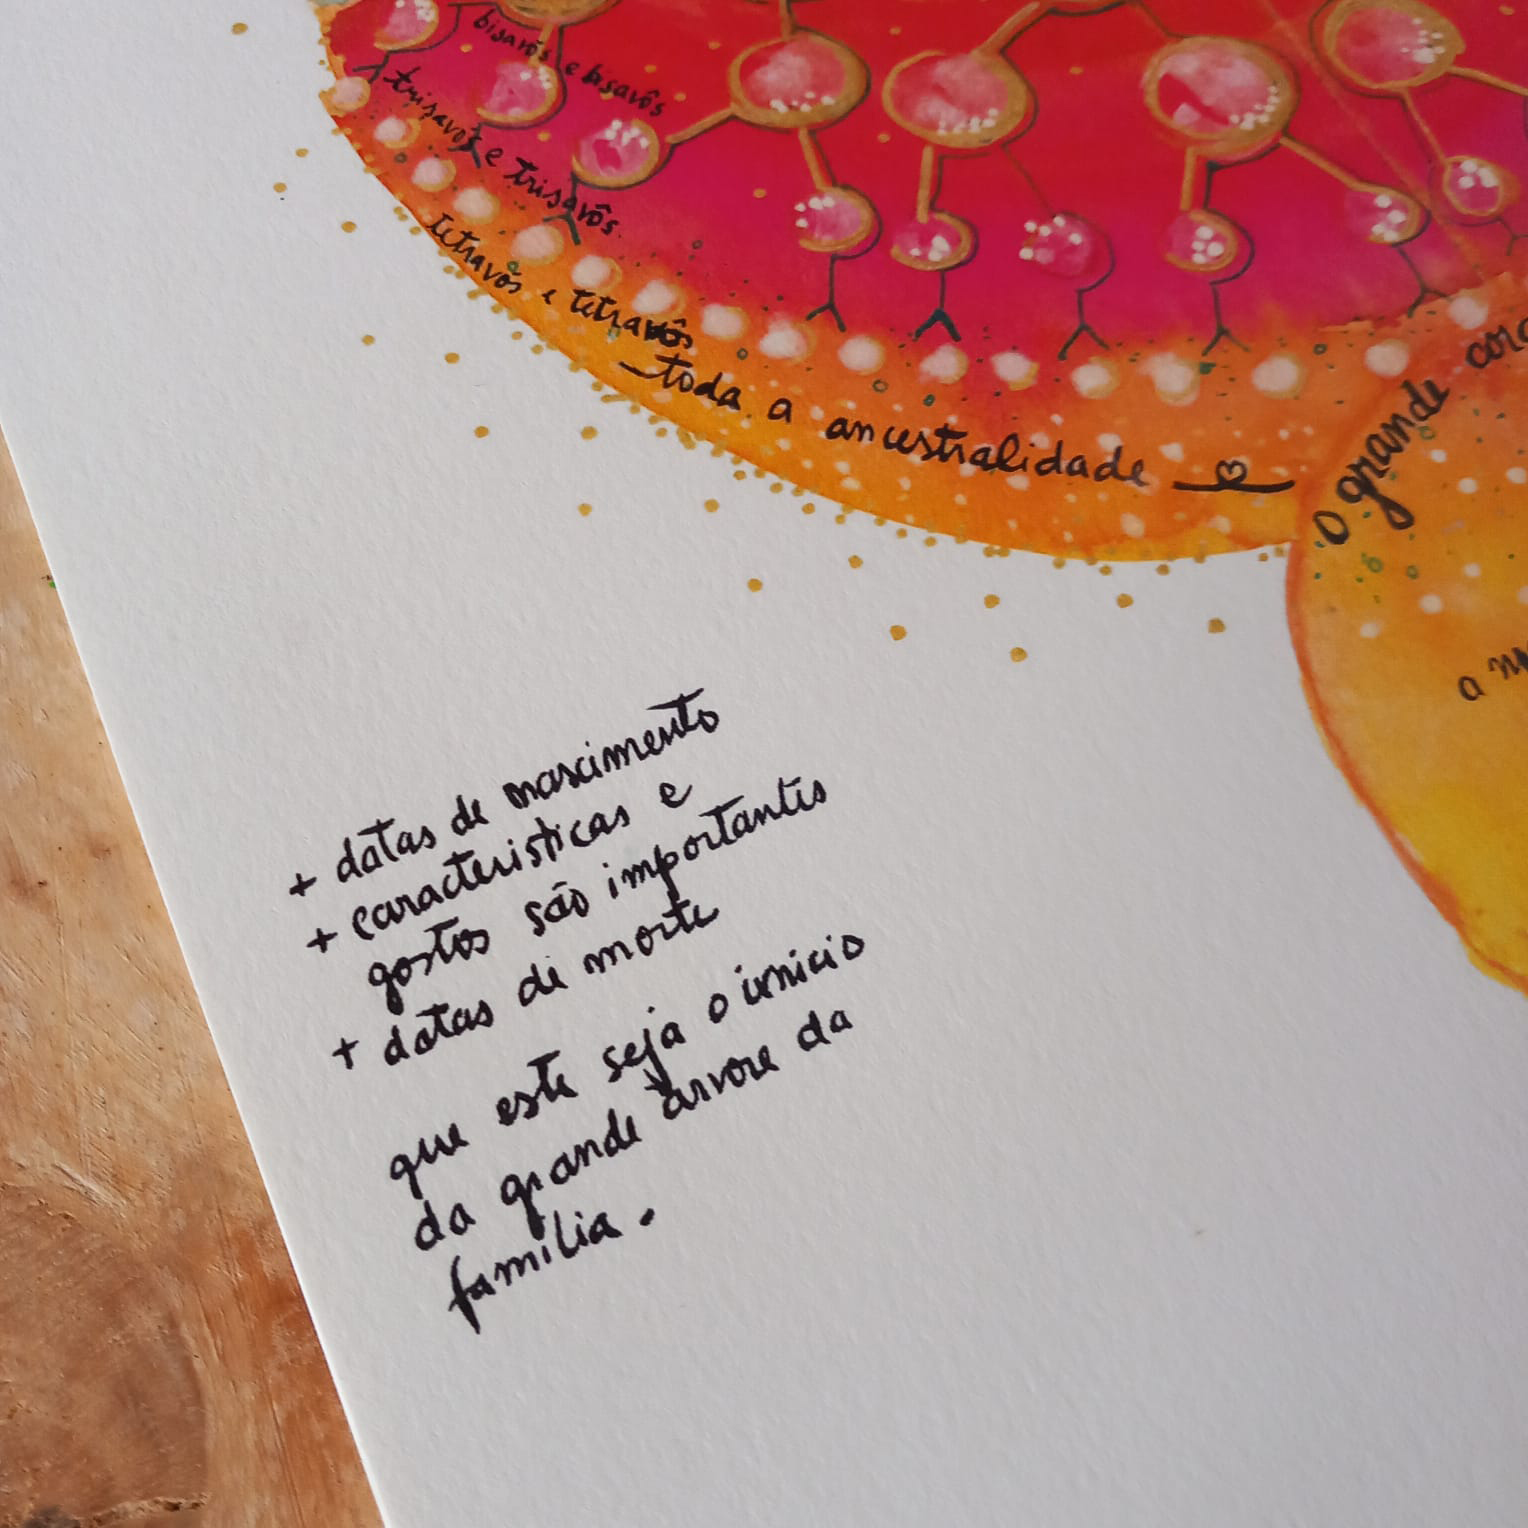 bisavós e bisavôs
trisavós e trisavôs.
tetravós e tetravôs
toda a ancestralidade
O grande
a
+ datas de nascimento
+ caracteristicas e
gostos são importantes
+ datas de morte
que este seja o inicio
da grande árvore da
família.